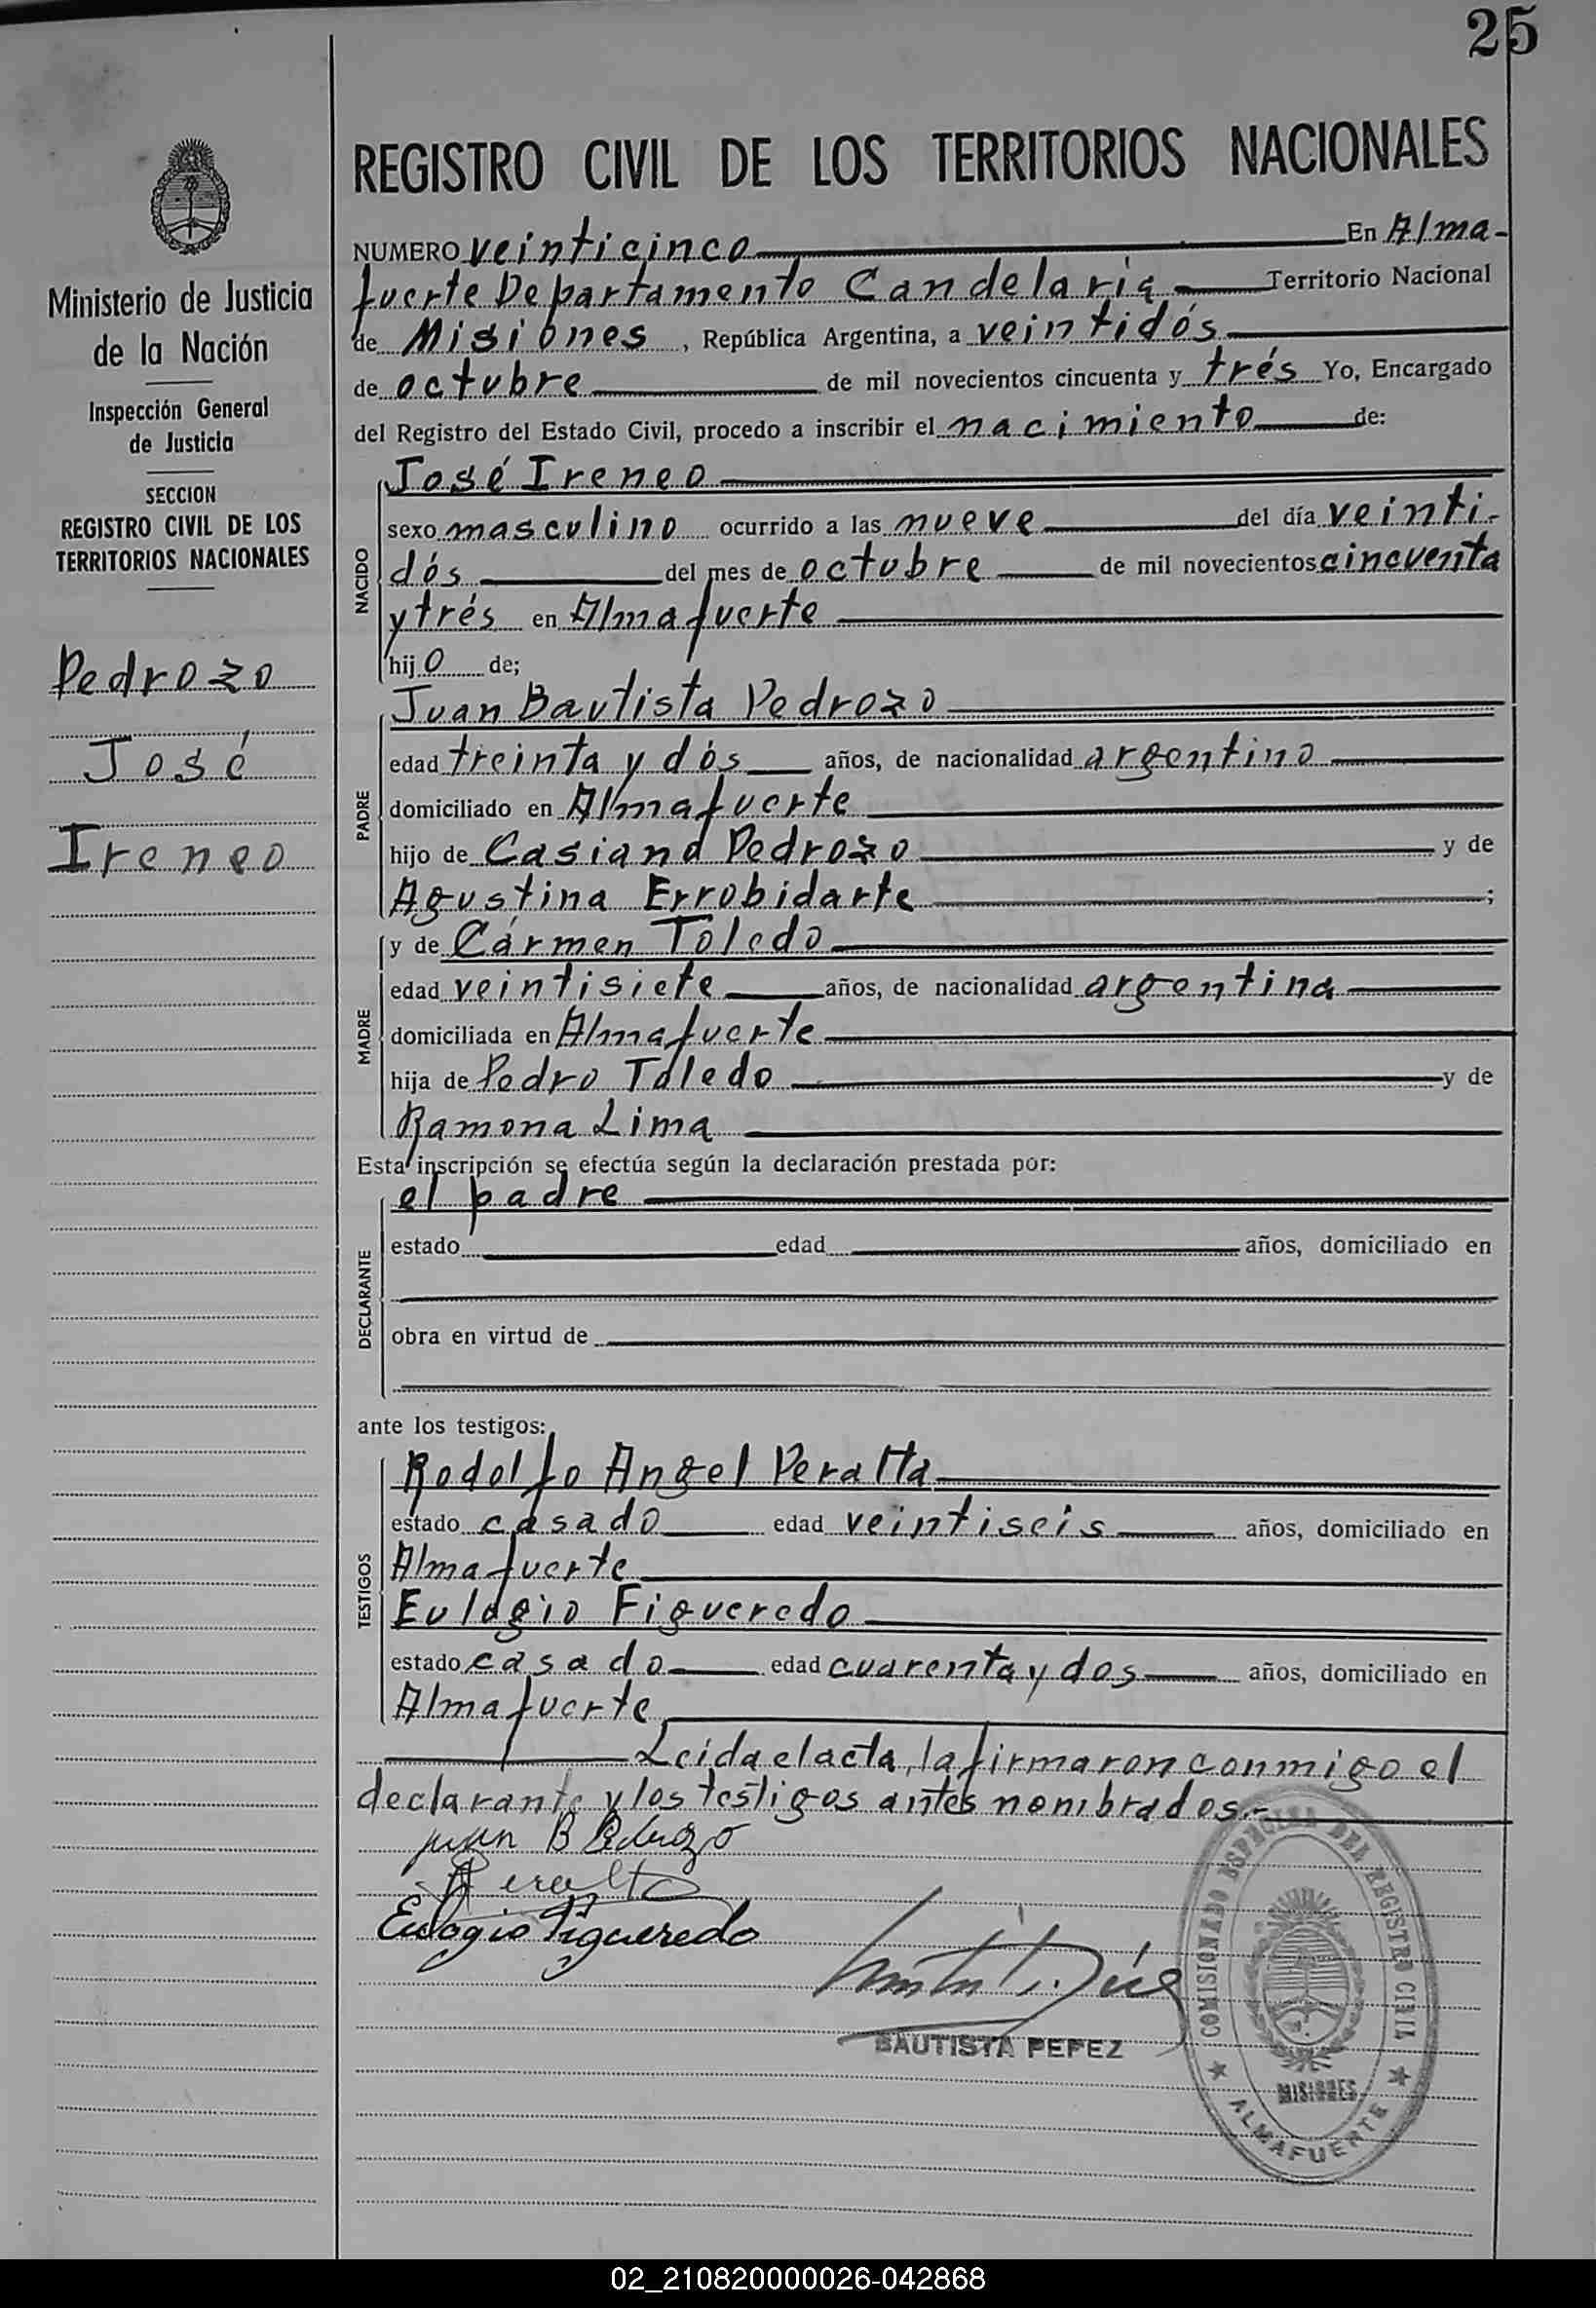 25
REGISTRO CIVIL DE LOS TERRITORIOS NACIONALES
Ministerio de Justicia
de la Nación
Inspección General
de Justicia
SECCION
REGISTRO CIVIL DE LOS
TERRITORIOS NACIONALES
Pedrozo
José
Ireneo
NUMERO veinticinco En Alma-
fuerte Departamento Candelaria Territorio Nacional
de Misiones, República Argentina, a veintidós
de octubre de mil novecientos cincuenta y trés Yo, Encargado
del Registro del Estado Civil, procedo a inscribir el nacimiento de:
NACIDO
José Ireneo
sexo masculino ocurrido a las nueve del día veinti-
dós del mes de octubre de mil novecientos cincuenta
y trés en Almafuerte
hijo de;
PADRE
Juan Bautista Pedrozo
edad treinta y dós años, de nacionalidad argentino
domiciliado en Almafuerte
hijo de Casiano Pedrozo y de
Agustina Errobidarte ;
MADRE
y de Cármen Toledo
edad veintisiete años, de nacionalidad argentina
domiciliada en Almafuerte
hija de Pedro Toledo y de
Ramona Lima
Esta inscripción se efectúa según la declaración prestada por:
DECLARANTE
el padre
estado edad años, domiciliado en
obra en virtud de
ante los testigos:
TESTIGOS
Rodolfo Angel Peralta
estado casado edad veintiseis años, domiciliado en
Almafuerte
Eulogio Figueredo
estado casado edad cuarenta y dos años, domiciliado en
Almafuerte
Leida el acta, la firmaron conmigo el
declarante y los testigos antes nombrados.-
juan B Pedrozo
Peralta
Eulogio Figueredo
BAUTISTA PEREZ
COMISIONADO ESPECIAL DEL REGISTRO CIVIL
MISIONES
ALMAFUERTE
02_210820000026-042868